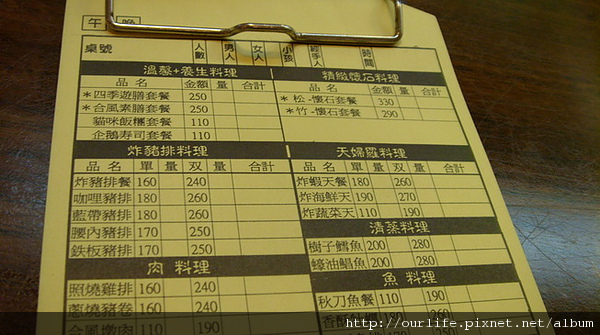 午 晚
桌號 人數 男人 女人 小孩 經手人 時間
溫馨+養生料理
品名 金額 量 合計
*四季遊膳套餐 250
*合風素膳套餐 250
貓咪飯糰套餐 110
企鵝寿司套餐 110
精緻懷石料理
品名 金額 量 合計
*松-懷石套餐 330
*竹-懷石套餐 290
炸豬排料理
品名 單 量 双 量 合計
炸豬排餐 160 240
咖哩豬排 160 260
藍帶豬排 180 260
腰內豬排 170 250
鉄板豬排 170 250
肉 料理
照燒雞排 160 240
蔥燒豬卷 160 240
合風墩肉 110 190
天婦羅料理
品名 單 量 双 量 合計
炸蝦天餐 180 260
炸海鮮天 190 270
炸蔬菜天 110 190
清蒸料理
樹子鱈魚 200 280
蠔油鯧魚 200 280
魚 料理
秋刀魚餐 110 190
200 280
http://ourlife.pixnet.net/album